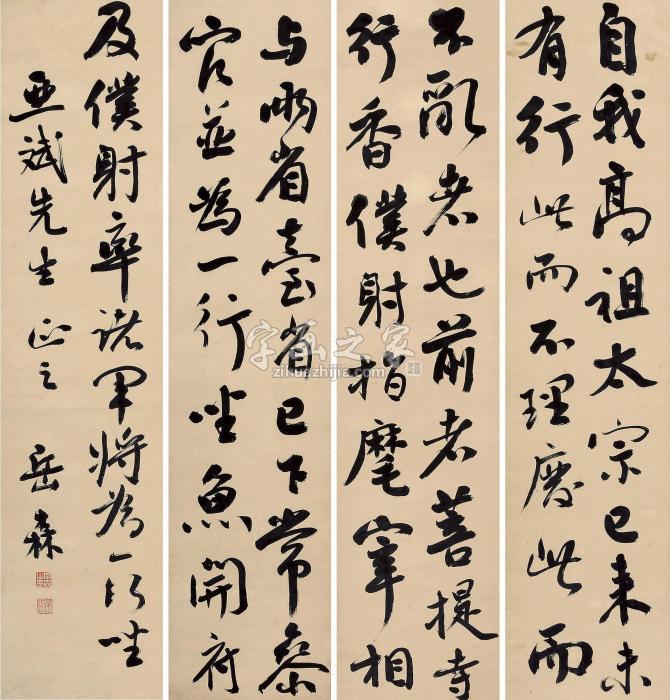 自我高祖太宗已来未
有行此而不理废此而
不乱者也前者菩提寺
行香僕射指麾宰相
与两省臺省已下常参
官並为一行坐鱼開府
及僕射率诸军将为一行坐
亚斌先生正之
岳森
字画之家
zihuazhijia.com